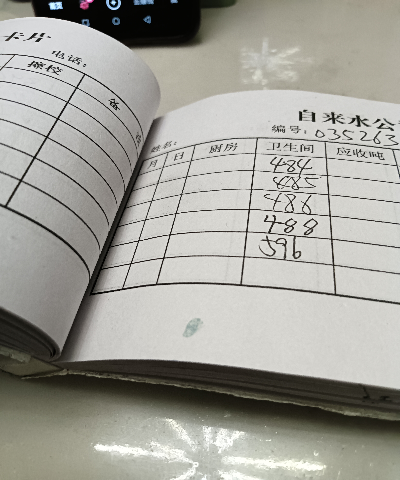 卡片
电话:
备
自来水公
编号: 035263
姓名:
月 日 厨房 卫生间 应收吨
484
485
488
488
596